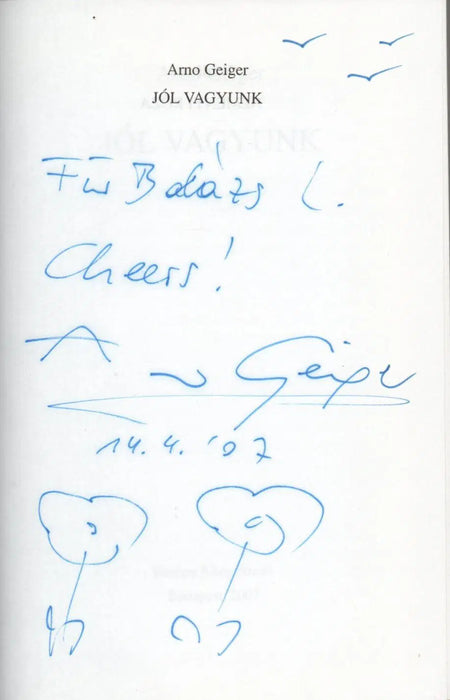 Arno Geiger
JÓL VAGYUNK
Für Balázs L.
Cheers!
Arno Geiger
14.4.'07